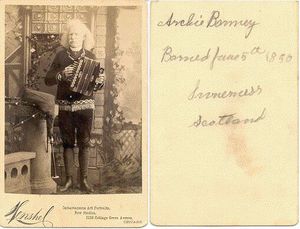 Henshel
Instantaneous Art Portraits,
New Studios,
3256 Cottage Grove Avenue,
CHICAGO
Archie Bonney
Borned June 5th 1850
Inverness
Scotland